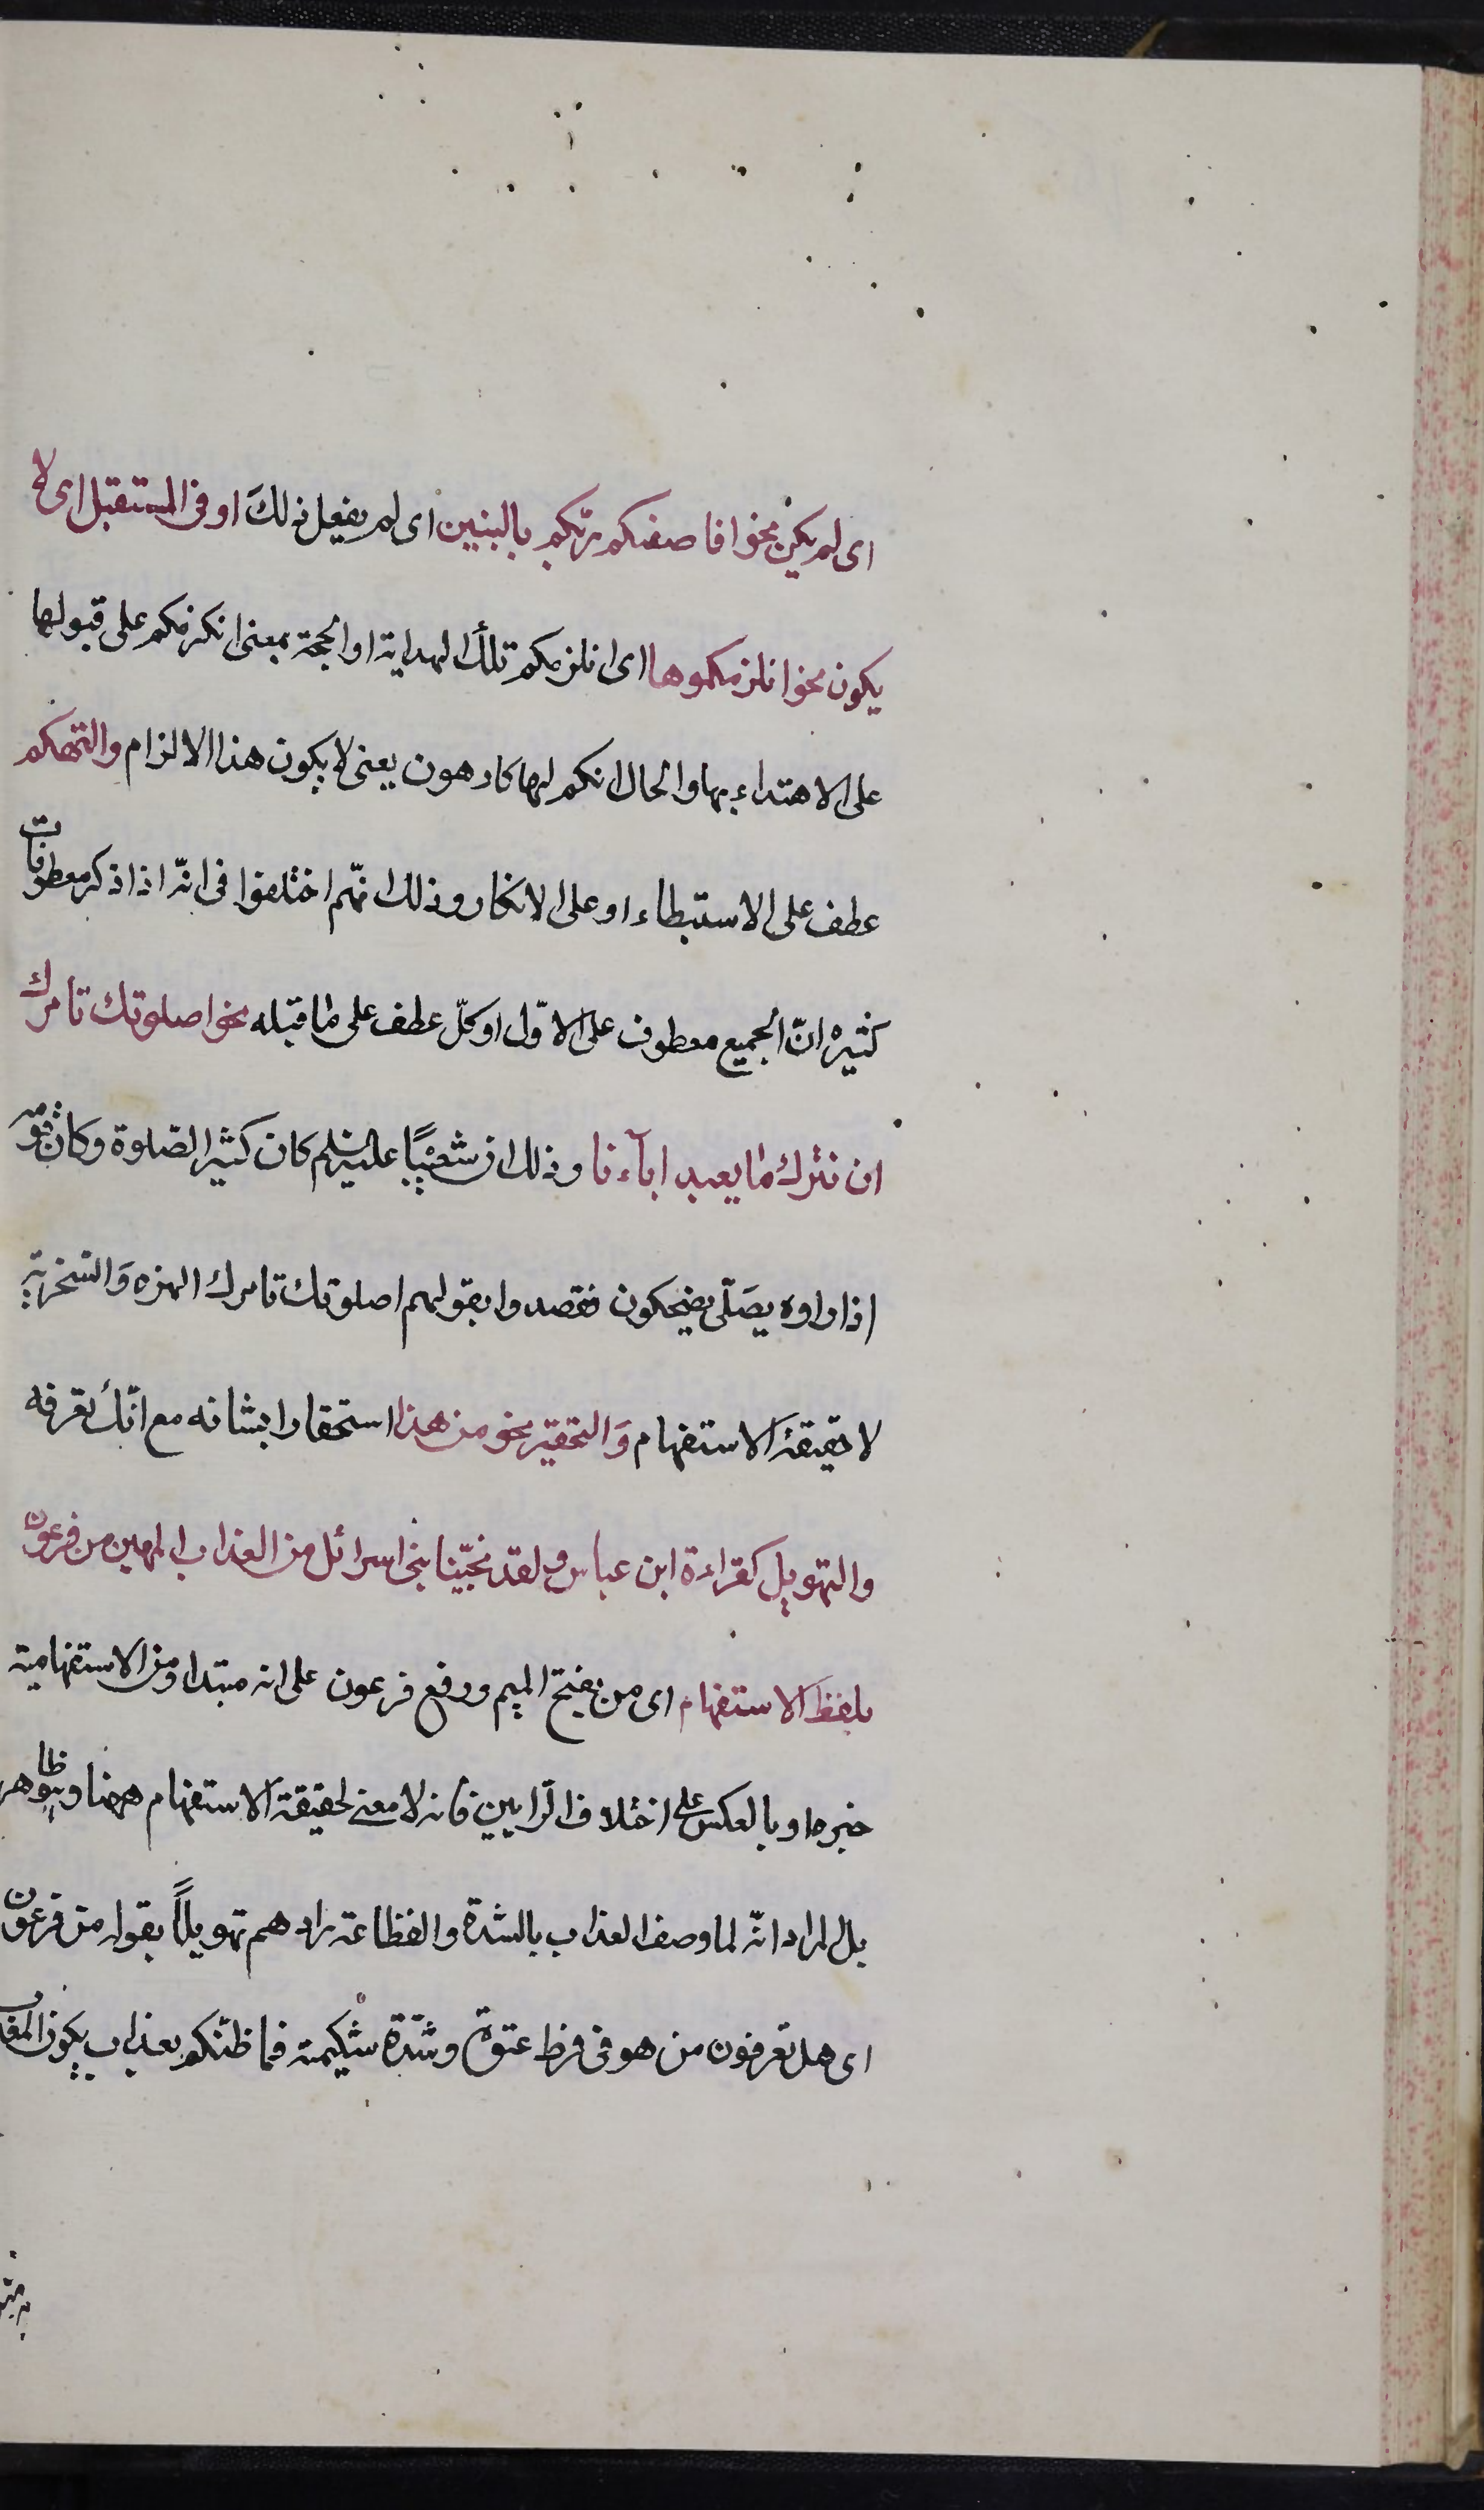 اى لم يكن نحو افاصفيكم ربّكم بالبنين اى لم يفعل ذلكَ او فى المستقبل اى لا
يكون نحو انلزمكموها اى انلزمكم تلك الهداية او الحجة بمعنى انكرهكم على قبولها
على الاهتداء بها والحال انكم لها كارهون يعنى لا يكون هذا الالزام والتهكم
عطف على الاستبطاء او على الانكار وذلك انّهم اختلفوا فى انّه اذا ذكر معطوفات
كثيره انّ الجميع معطوف على الاوّل او كلّ عطف على ما قبله نحو اصلوتك تامرك
ان نترك ما يعبد اباۤءنا وذلك ان شعيبًا عليه السلم كان كثير الصّلوة وكان قومه
اذا راوه يصَلّى يضحكون فقصدوا بقولهم اصلوتك تامرك الهزء وَالسّخرية
لا حقيقة الاستفهام وَالتحقير نحو من هذا استحقارا بشانه مع انّك تعرفه
والتهويل كقراءة ابن عباس ولقد نجّينا بنى اسرائل من العذاب المهين من فرعون
بلفظ الاستفهام اى من بفتح الميم ورفع فرعون على انه مبتدا ومن الاستفهامية
خبرها وبالعكس على اختلاف الرّايين فانه لا معنى لحقيقة الاستفهام ههنا وهو ظاهر
بل المراد انّه لما وصف العذاب بالشدة والفظاعة زادهم تهويلاً بقوله من فرعون
اى هل تعرفون من هو فى فرط عتوّه وشدّة شكيمته فما ظنّكم بعذاب يكون